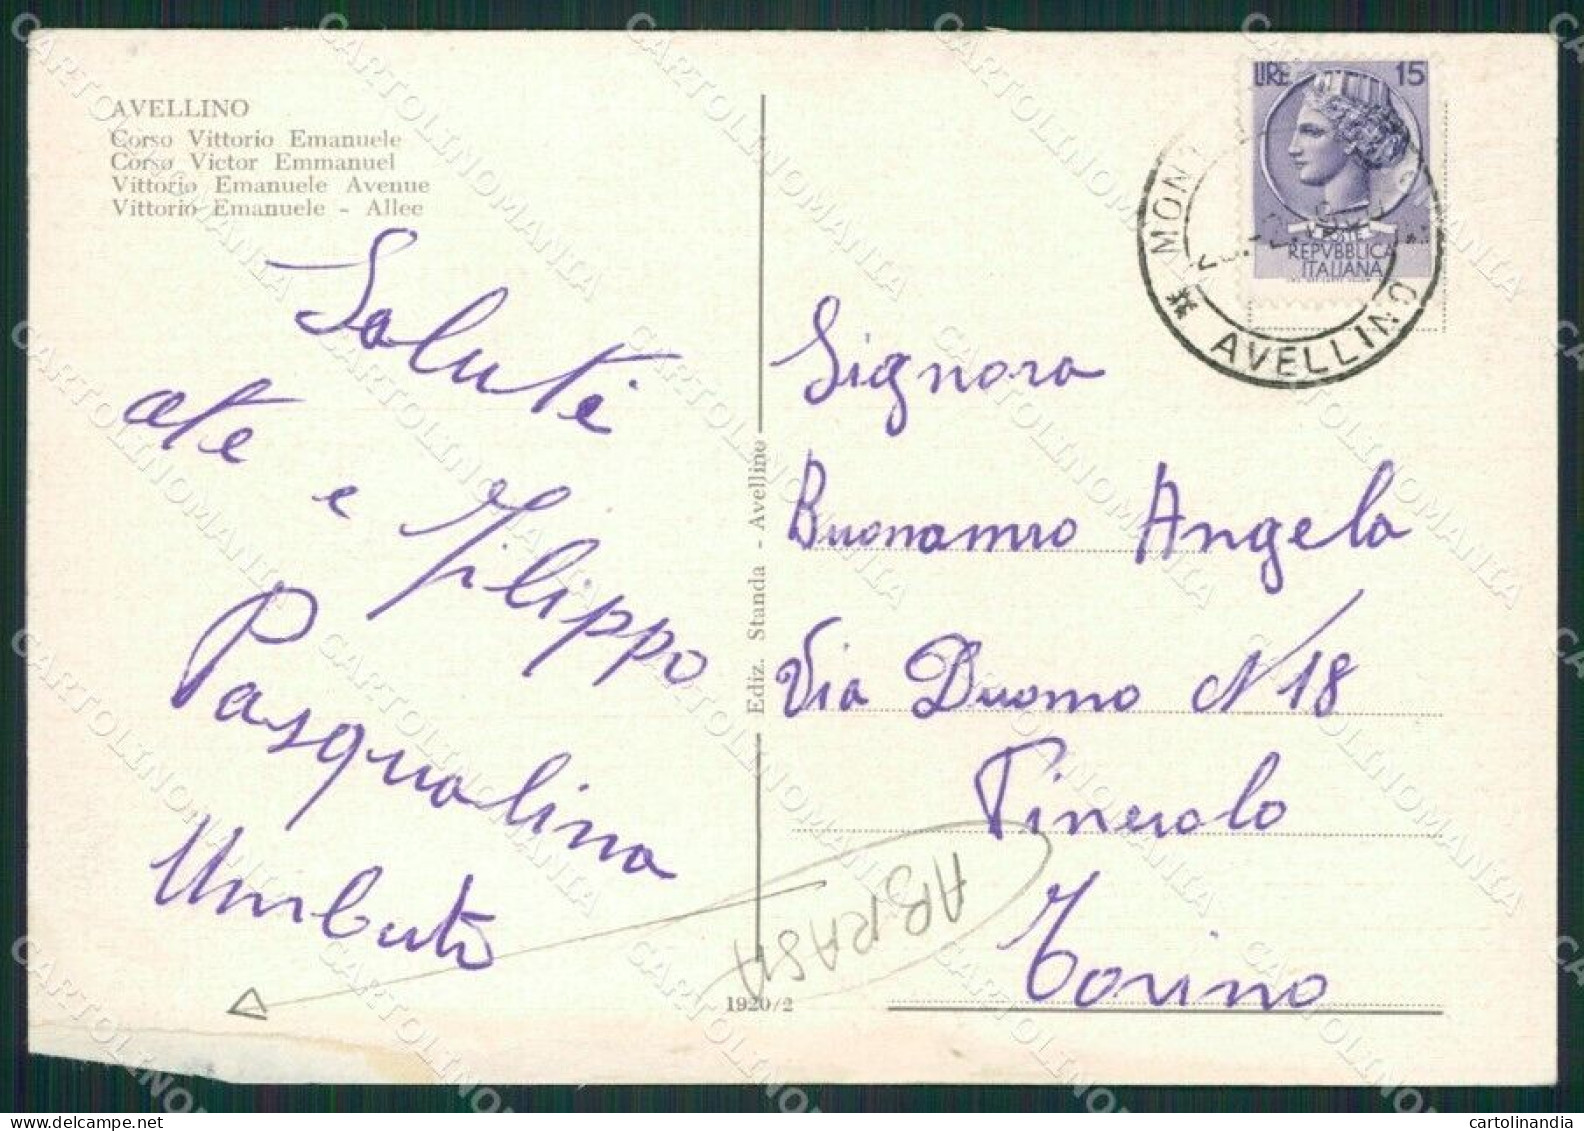 AVELLINO
Corso Vittorio Emanuele
Corso Victor Emmanuel
Vittorio Emanuele Avenue
Vittorio Emanuele - Allee
LIRE 15
POSTE
REPVBBLICA
ITALIANA
MON
AVELLINO
Saluti
ate e Filippo
Pasqualina
Umberto
Ediz. Standa - Avellino
Signora
Buonamro Angela
Via Duomo N 18
Pinerolo
Torino
ABRASA
1920/2
CARTOLINOMANIA
delcampe.net
cartolinandia